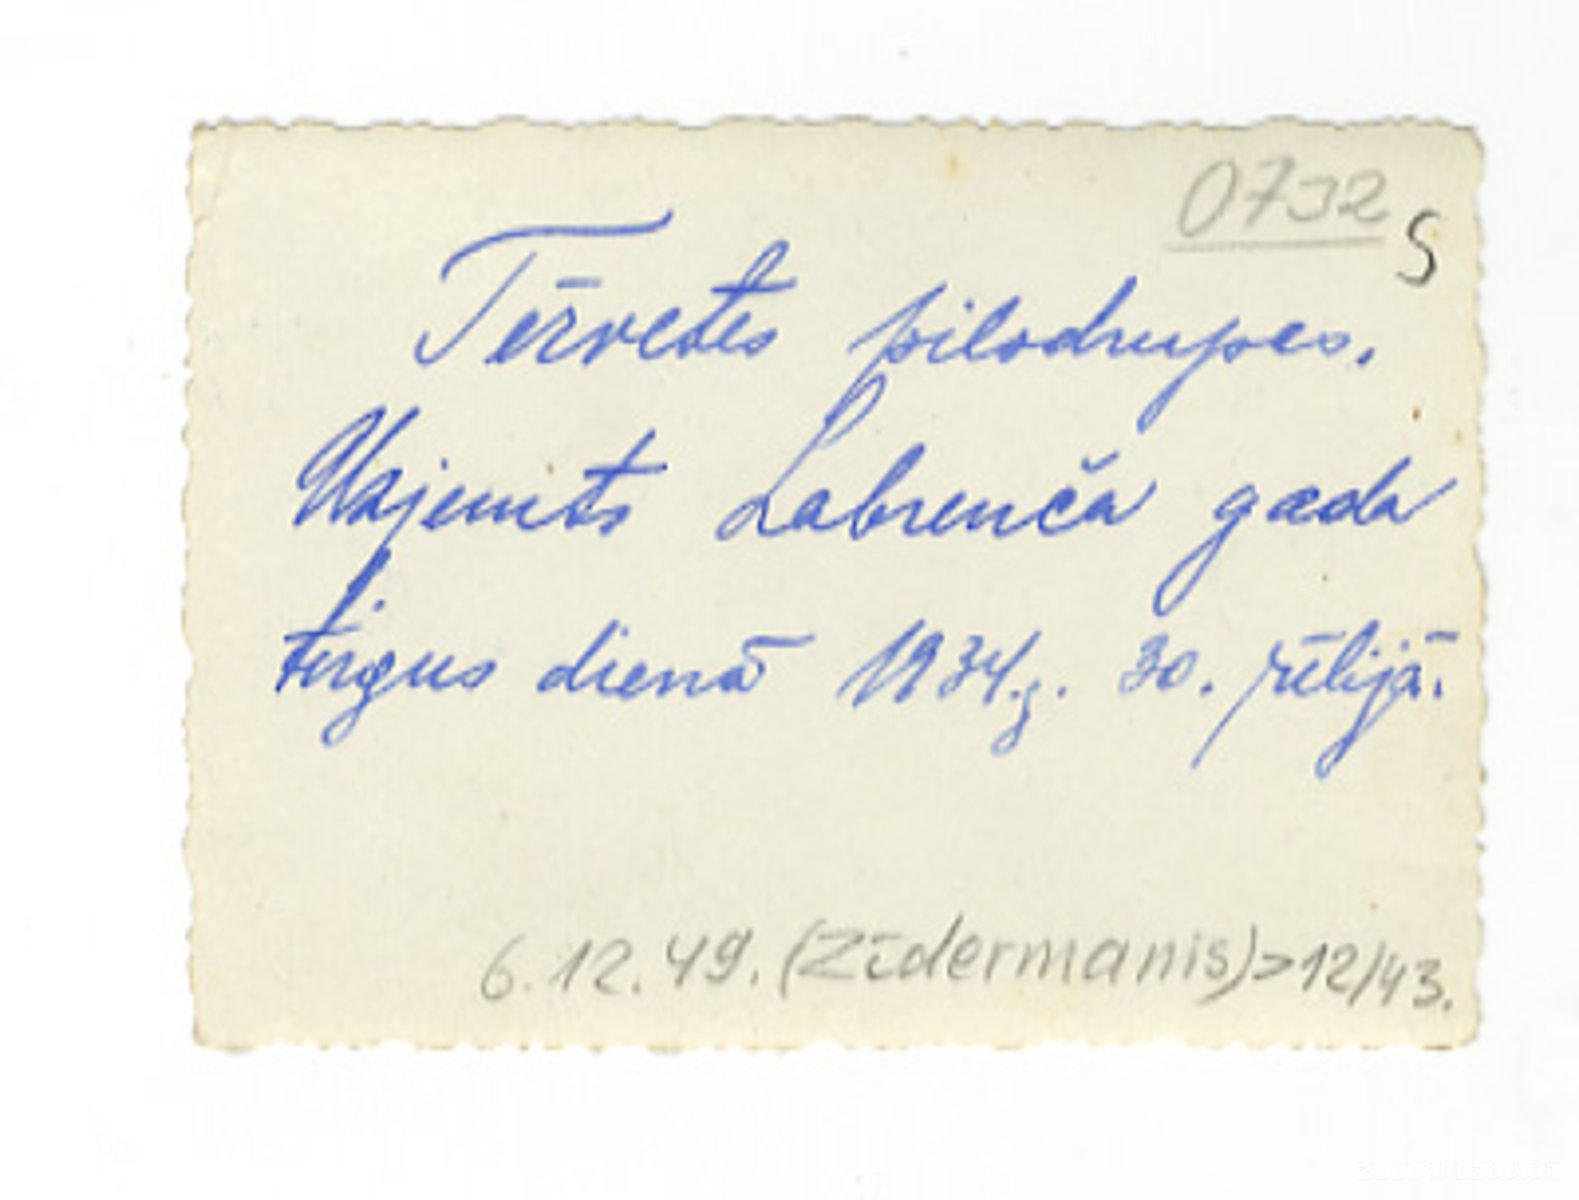 0732
S
Tērvetes pilsdrupes.
Uzņemts Labrenča gada
tirgus dienā 1934.g. 30. jūlijā.
6.12.49. (Zīdermanis)>12/43.